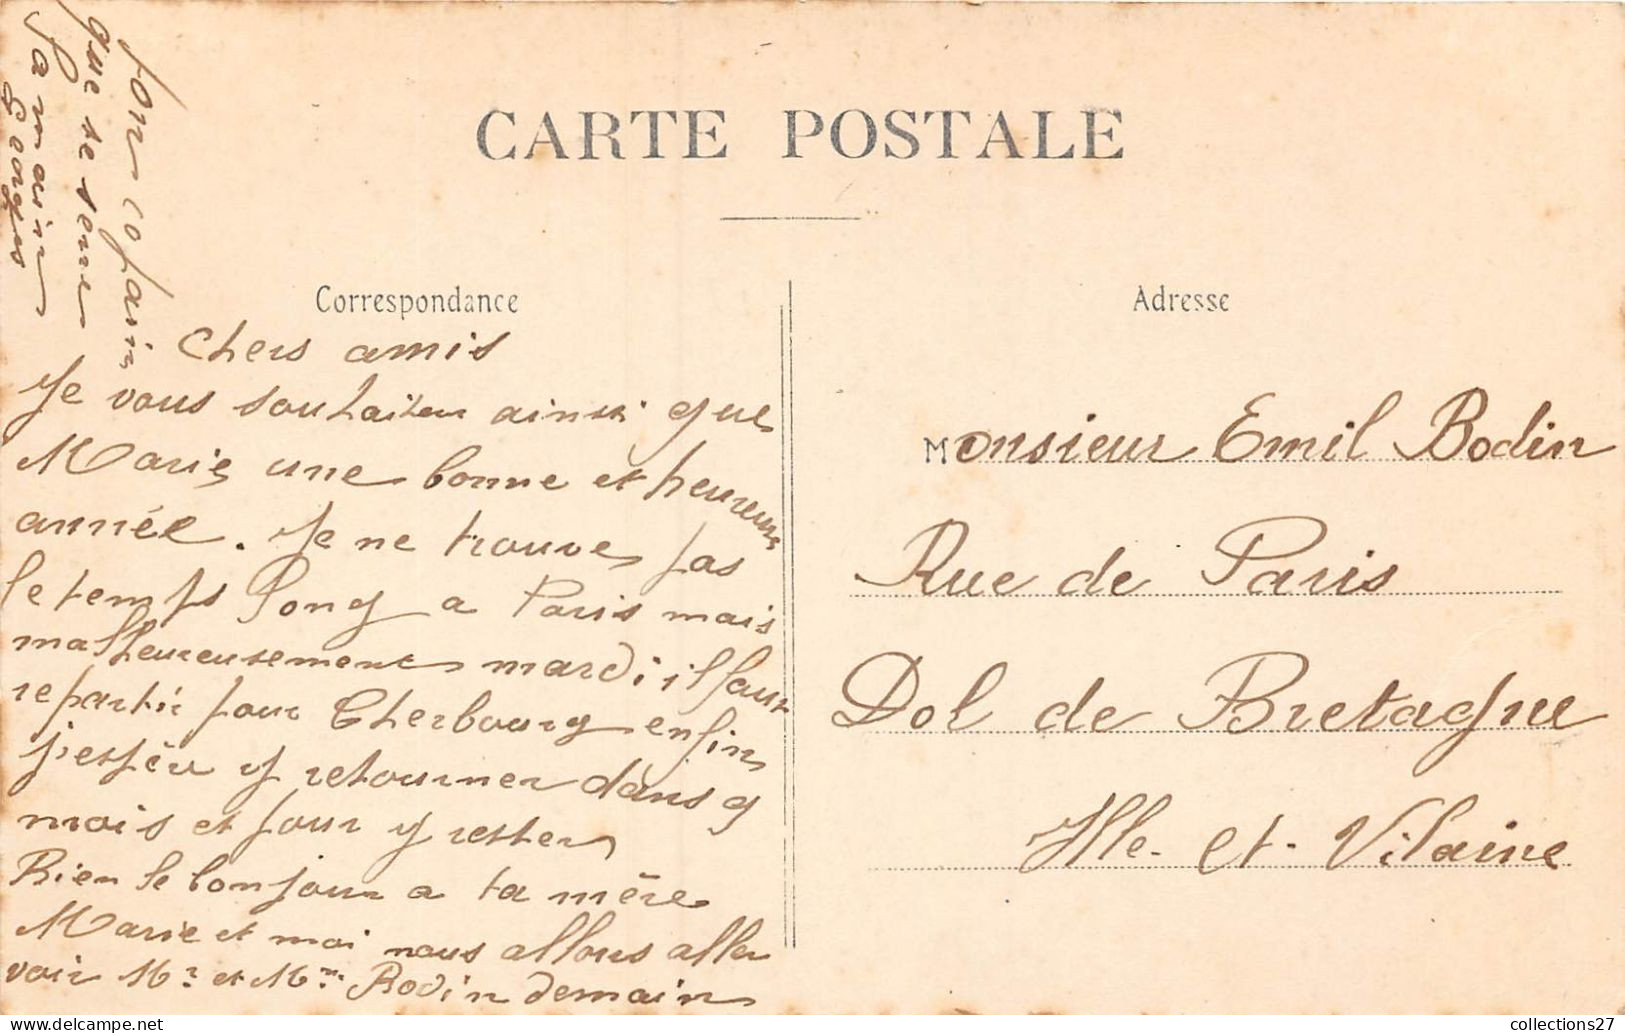 CARTE POSTALE
Correspondance
Chers amis
Je vous souhaiten ainsi que
Marie une bonne et heureuse
année. Je ne trouve pas
le temps Long a Paris mais
malheureusement mardi il faut
repartir pour Cherbourg enfin
j'espère y retourner dans 9
mois et pour y rester
Rien le bonjour a ta mère
Marie et moi nous allons aller
voir Mr et Mme Bodin demain
ton copain
que se serre
la main
Georges
Adresse
Monsieur Emil Bodin
Rue de Paris
Dol de Bretagne
Ille - et - Vilaine
collections27